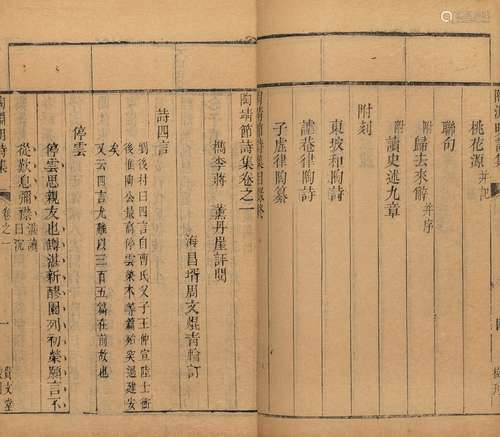 桃花源并記
聯句
附歸去來辭并序
附讀史述九章
附刻
東坡和陶詩
謔菴律陶詩
子虛律陶纂
陶靖節詩集目錄終
陶靖節詩集卷之一
檇李蔣薰丹崖評閱
海昌壻周文焜青輪訂
詩四言
劉後村曰四言自曹氏父子王仲宣陸士衡
後惟陶公最高停雲榮木等篇殆突過建安
矣
又云四言尤難以三百五篇在前故也
停雲
停雲思親友也罇湛新醪園列初榮願言不
從歎息彌襟
陶淵明詩集
卷之一
一